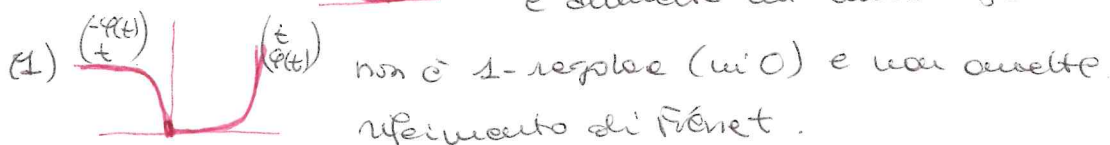 (1) (-φ(t) t) (t φ(t)) non è 1-regolare (in 0) e non ammette
riferimento di Frénet.